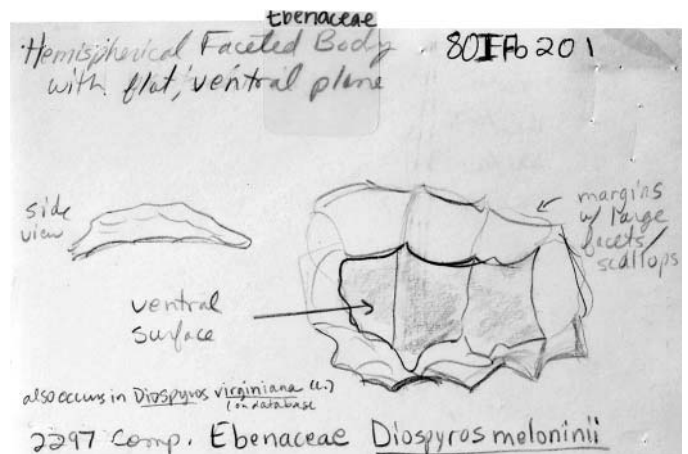 Ebenaceae
Hemispherical Faceted Body
with flat, ventral plane
80IFb 201
side
view
margins
w/ large
facets/
scallops
ventral
surface
also occurs in Diospyros virginiana (L.)
(on database
2297 Comp. Ebenaceae Diospyros meloninii